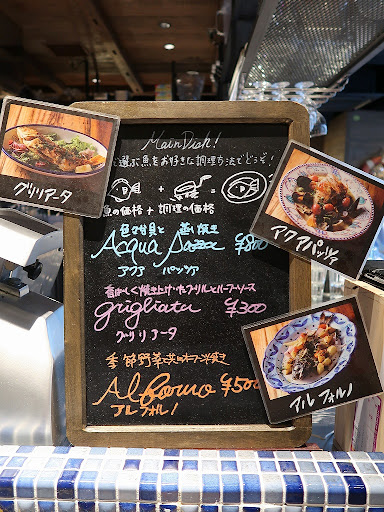 Main Dish!
選ぶ魚をお好きな調理方法でどうぞ!
+ =
魚の価格 + 調理の価格
色々貝と 蒸し焼き
Acqua Pazza ¥800
アクア パッツァ
香ばしく焼き上げたグリルとハーブソース
grigliata ¥300
グリリアータ
季節野菜の
Al Forno ¥500
アル フォルノ
グリリアータ
アクアパッツァ
アル フォルノ